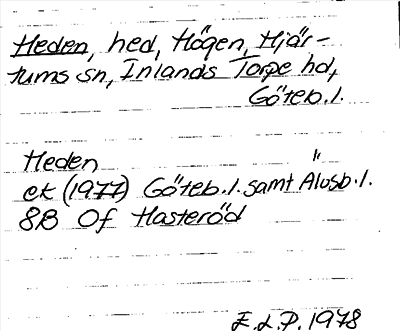 Heden, hed, Högen, Hjär-
tums sn, Inlands Torpe hd,
Göteb. l.
Heden
ek (1977) Göteb. l. samt Älvsb. l.
8B 0f Hasteröd
E.L.P. 1978